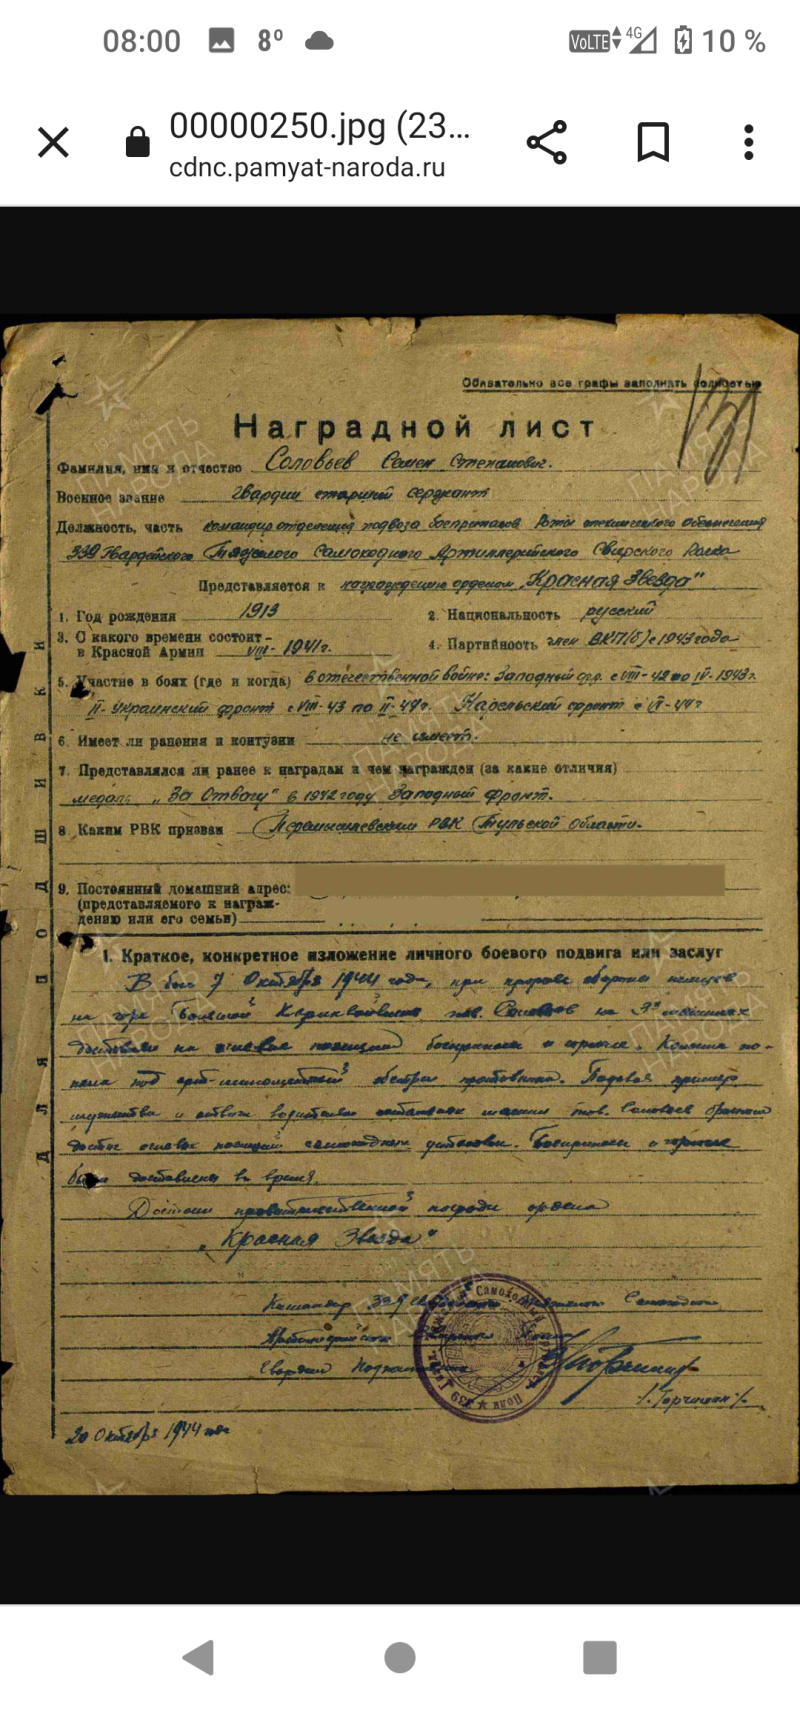 08:00
8°
VoLTE
4G
10 %
00000250.jpg (23...
cdnc.pamyat-naroda.ru
Обязательно все графы заполнять полностью
Наградной лист
Фамилия, имя и отчество Соловьев Семен Степанович.
Военное звание гвардии старший сержант
Должность, часть командир отделения подвоза боеприпасов Роты технического обеспечения
339 Гвардейского Тяжелого Самоходного Артиллерийского Свирского Полка
Представляется к награждению орденом „Красная Звезда"
1. Год рождения 1913
2. Национальность русский
3. С какого времени состоит
в Красной Армии VIII-1941г.
4. Партийность член ВКП(б) с 1943 года
5. Участие в боях (где и когда) в отечественной войне: Западный фр. с VIII-42 по IV-1943г.
II-Украинский фронт с VIII-43 по II-44г. Карельский фронт с VI-44г
6. Имеет ли ранения и контузии не имеет.
7. Представлялся ли ранее к наградам и чем награжден (за какие отличия)
медаль „За Отвагу" в 1942 году Западный Фронт.
8. Каким РВК призван РВК Тульской Области.
9. Постоянный домашний адрес:
(представляемого к награж-
дению или его семьи)
ДЛЯ ПОДШИВКИ
1. Краткое, конкретное изложение личного боевого подвига или заслуг
В бою 7 Октября 1944 года, при прорыве обороны немцев
на горе Большой тов. Соловьев на 3х машинах
доставлял на огневые позиции боеприпасы и горючее. Колонна по-
пала под арт-минометный обстрел противника. Подавая пример
мужества и отваги водителям машин тов. Соловьев
достиг огневых позиций самоходных установок. Боеприпасы и горючее
были доставлены во время.
Достоин правительственной награды ордена
„Красная Звезда"
Командир 339
Гвардии
20 Октября 1944 года
ПАМЯТЬ НАРОДА